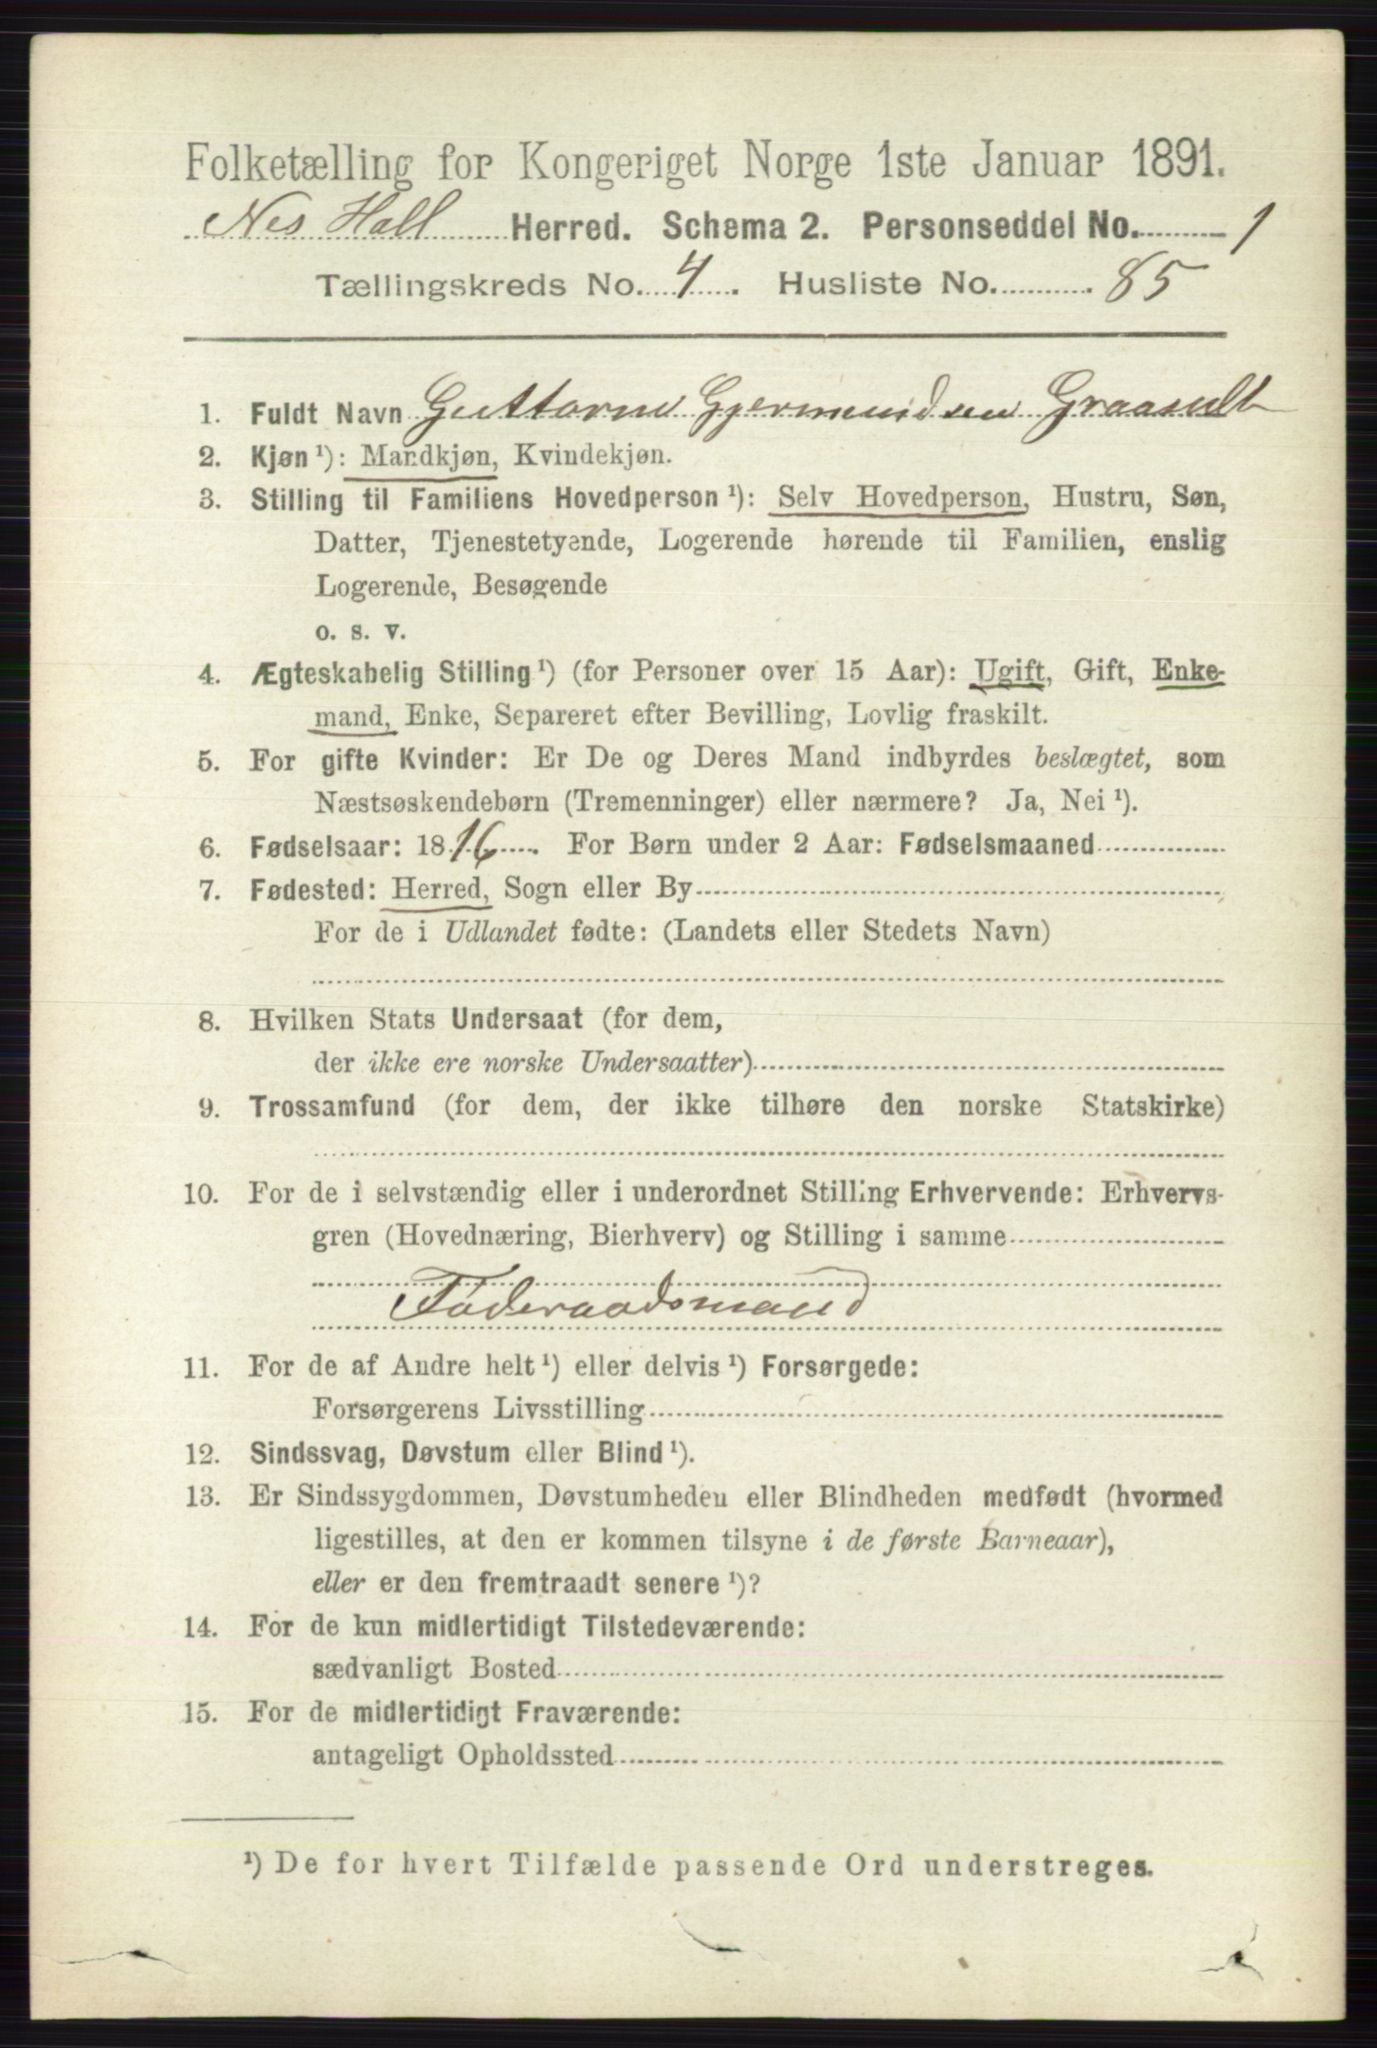 Folketælling for Kongeriget Norge 1ste Januar 1891.
Nes Hall Herred. Schema 2. Personseddel No. 1
Tællingskreds No. 4. Husliste No. 85
1. Fuldt Navn Guttorm Gjermundsen Graasult
2. Kjøn ¹): Mandkjøn, Kvindekjøn.
3. Stilling til Familiens Hovedperson ¹): Selv Hovedperson, Hustru, Søn,
Datter, Tjenestetyende, Logerende hørende til Familien, enslig
Logerende, Besøgende
o. s. v.
4. Ægteskabelig Stilling ¹) (for Personer over 15 Aar): Ugift, Gift, Enke-
mand, Enke, Separeret efter Bevilling, Lovlig fraskilt.
5. For gifte Kvinder: Er De og Deres Mand indbyrdes beslægtet, som
Næstsøskendebørn (Tremenninger) eller nærmere? Ja, Nei ¹).
6. Fødselsaar: 1816. For Børn under 2 Aar: Fødselsmaaned
7. Fødested: Herred, Sogn eller By
For de i Udlandet fødte: (Landets eller Stedets Navn)
8. Hvilken Stats Undersaat (for dem,
der ikke ere norske Undersaatter)
9. Trossamfund (for dem, der ikke tilhøre den norske Statskirke)
10. For de i selvstændig eller i underordnet Stilling Erhvervende: Erhvervs-
gren (Hovednæring, Bierhverv) og Stilling i samme
Føderaadsmand
11. For de af Andre helt ¹) eller delvis ¹) Forsørgede:
Forsørgerens Livsstilling
12. Sindssvag, Døvstum eller Blind ¹).
13. Er Sindssygdommen, Døvstumheden eller Blindheden medfødt (hvormed
ligestilles, at den er kommen tilsyne i de første Barneaar),
eller er den fremtraadt senere ¹)?
14. For de kun midlertidigt Tilstedeværende:
sædvanligt Bosted
15. For de midlertidigt Fraværende:
antageligt Opholdssted
¹) De for hvert Tilfælde passende Ord understreges.